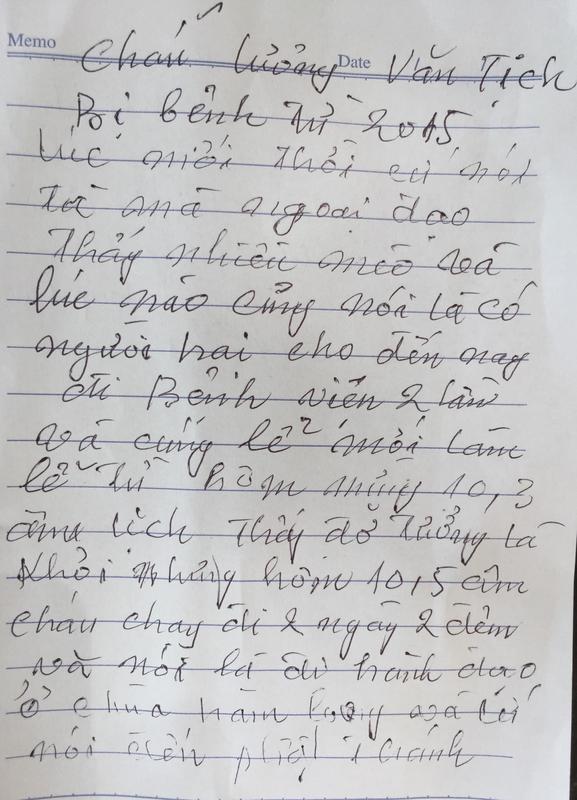 Memo Date
Cháu Lưởng Văn Tịch
Bị bệnh từ 2015
lúc mới thời cứ nói
là mà ngoại dao
thấy nhiều mèo và
lúc nào cũng nói là có
người hai cho đến nay
đi Bệnh viên 2 lần
và cúng lê 2 mới làm
lê từ hôm mùng 10,3
âm lịch thấy đở tưởng là
khỏi nhưng hôm 10,5 âm
cháu chay đi 2 ngày 2 đêm
và nói là đi hành dao
ở chùa hàm long và cứ
nói đến phật thánh